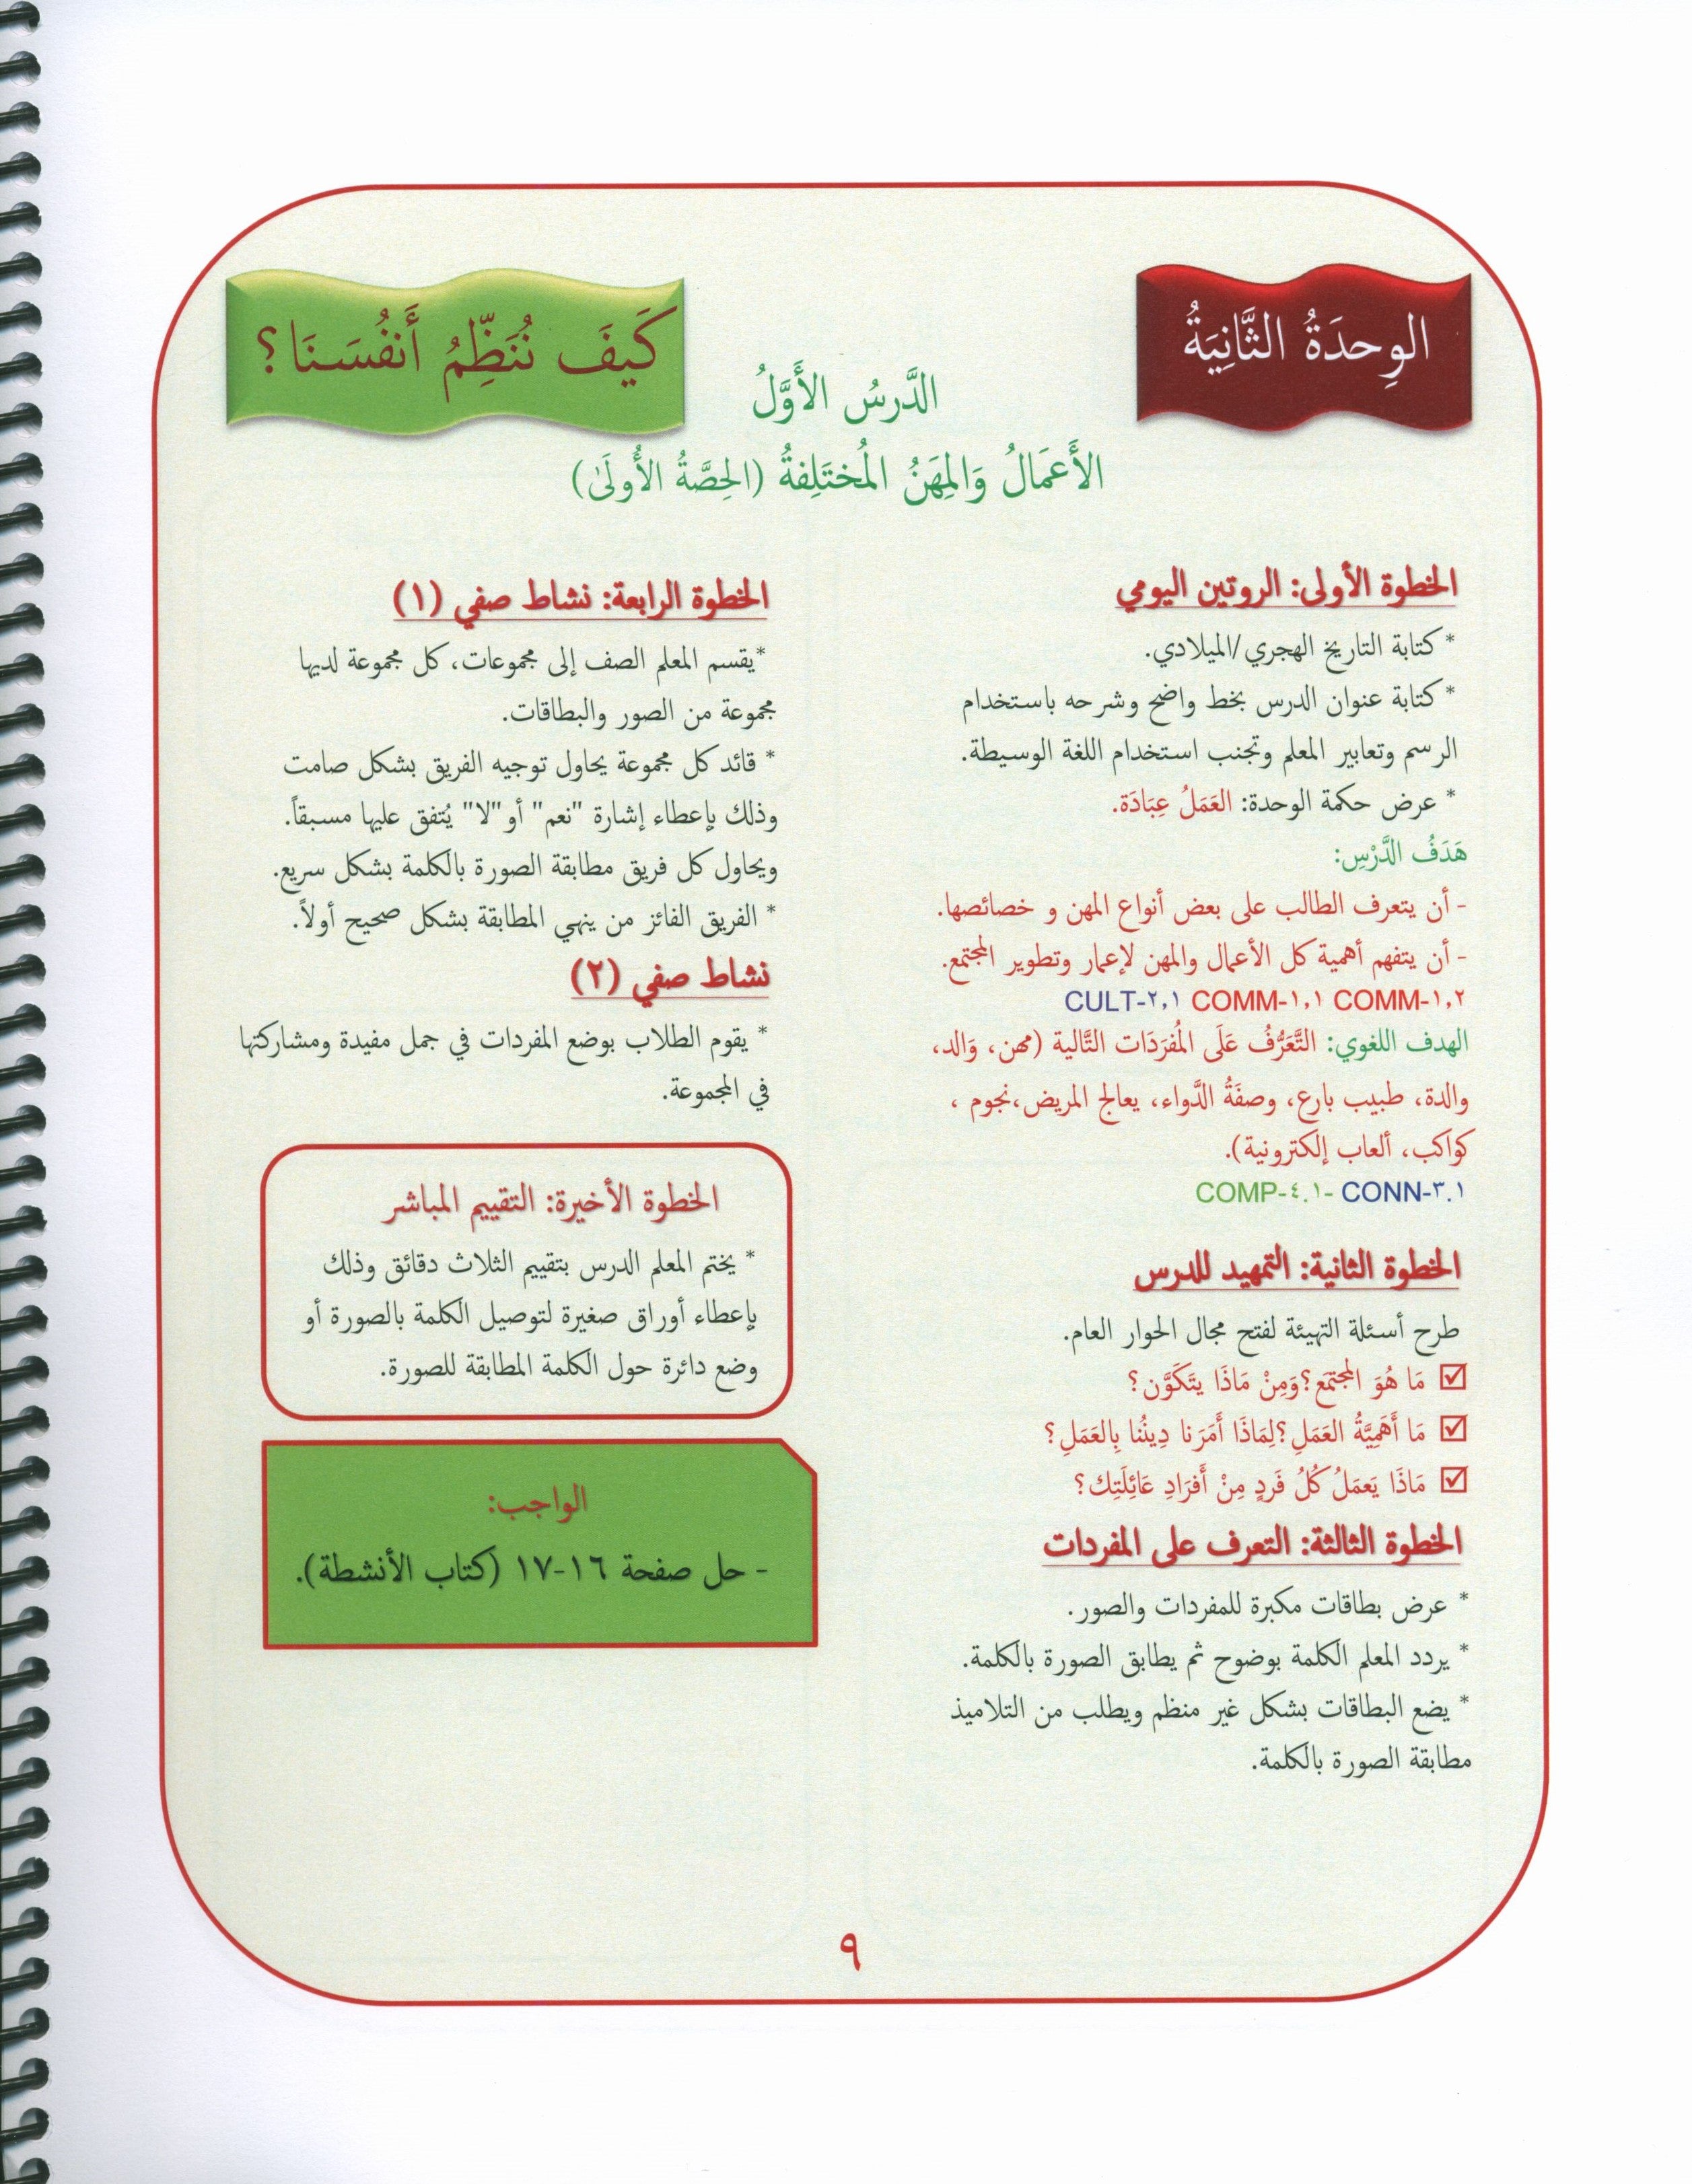 الوِحدَةُ الثَّانِيَةُ
كَيفَ نُنَظِّمُ أَنفُسَنَا؟
الدَّرسُ الأَوَّلُ
الأَعمَالُ وَالمِهَنُ المُختَلِفةُ (الحِصَّةُ الأُولَىٰ)
الخطوة الأولى: الروتين اليومي
* كتابة التاريخ الهجري/الميلادي.
* كتابة عنوان الدرس بخط واضح وشرحه باستخدام
الرسم وتعابير المعلم وتجنب استخدام اللغة الوسيطة.
* عرض حكمة الوحدة: العَمَلُ عِبَادَة.
هَدَفُ الدَّرْسِ:
- أن يتعرف الطالب على بعض أنواع المهن و خصائصها.
- أن يتفهم أهمية كل الأعمال والمهن لإعمار وتطوير المجتمع.
CULT-٢,١ COMM-١,١ COMM-١,٢
الهدف اللغوي: التَّعَرُّفُ عَلَى المُفرَدَات التَّالية (مهن، وَالد،
والدة، طبيب بارع، وصفَةُ الدَّواء، يعالج المريض،نجوم ،
كواكب، ألعاب إلكترونية).
COMP-٤.١- CONN-٣.١
الخطوة الثانية: التمهيد للدرس
طرح أسئلة التهيئة لفتح مجال الحوار العام.
☑ مَا هُوَ المجتَمَع؟وَمِنْ مَاذَا يتَكَوَّن؟
☑ مَا أَهَمِيَّةُ العَمَلِ؟لِمَاذَا أَمَرَنا دِينُنا بِالعَمَلِ؟
☑ مَاذَا يَعمَلُ كُلُ فَردٍ مِنْ أَفرَادِ عَائِلَتِك؟
الخطوة الثالثة: التعرف على المفردات
* عرض بطاقات مكبرة للمفردات والصور.
* يردد المعلم الكلمة بوضوح ثم يطابق الصورة بالكلمة.
* يضع البطاقات بشكل غير منظم ويطلب من التلاميذ
مطابقة الصورة بالكلمة.
الخطوة الرابعة: نشاط صفي (١)
*يقسم المعلم الصف إلى مجموعات، كل مجموعة لديها
مجموعة من الصور والبطاقات.
* قائد كل مجموعة يحاول توجيه الفريق بشكل صامت
وذلك بإعطاء إشارة "نعم" أو "لا" يُتفق عليها مسبقاً.
ويحاول كل فريق مطابقة الصورة بالكلمة بشكل سريع.
* الفريق الفائز من ينهي المطابقة بشكل صحيح أولاً.
نشاط صفي (٢)
* يقوم الطلاب بوضع المفردات في جمل مفيدة ومشاركتها
في المجموعة.
الخطوة الأخيرة: التقييم المباشر
* يختم المعلم الدرس بتقييم الثلاث دقائق وذلك
بإعطاء أوراق صغيرة لتوصيل الكلمة بالصورة أو
وضع دائرة حول الكلمة المطابقة للصورة.
الواجب:
- حل صفحة ١٦-١٧ (كتاب الأنشطة).
٩